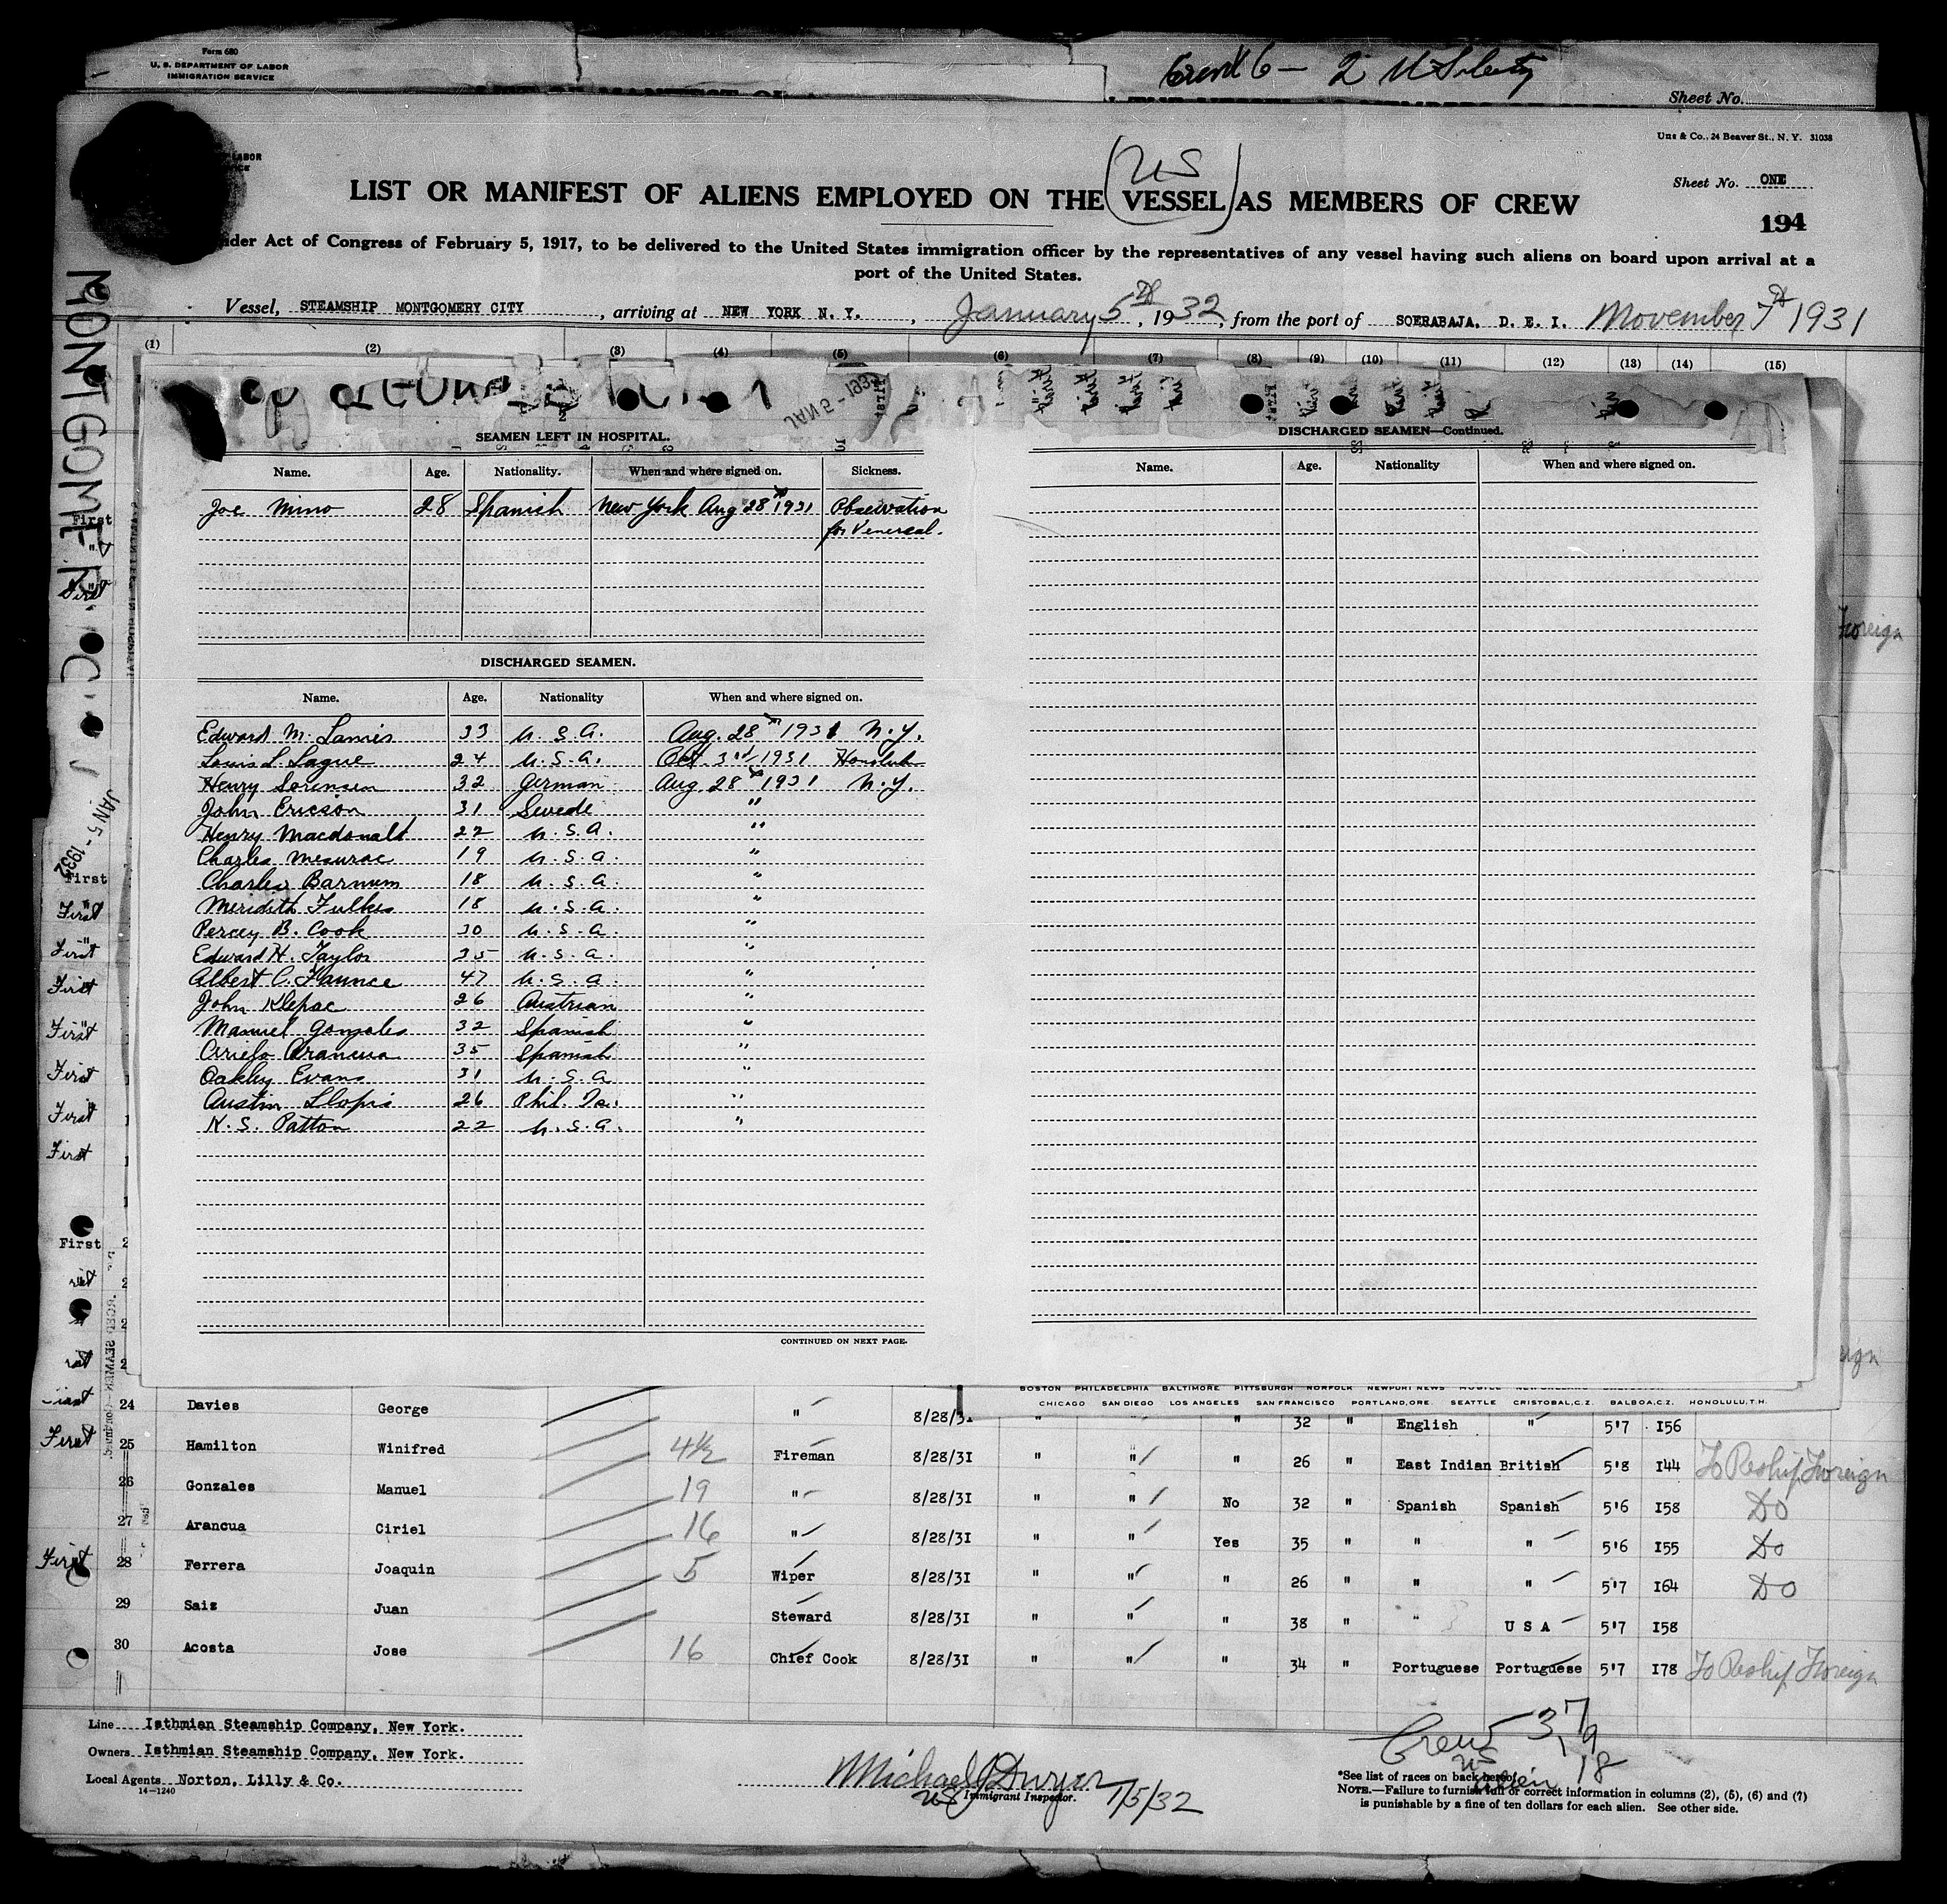 Form 680
U. S. DEPARTMENT OF LABOR
IMMIGRATION SERVICE
6 — 2
Sheet No.
Une & Co., 24 Beaver St., N. Y. 31038
LABOR
US
LIST OR MANIFEST OF ALIENS EMPLOYED ON THE VESSEL AS MEMBERS OF CREW
Sheet No. ONE
194
der Act of Congress of February 5, 1917, to be delivered to the United States immigration officer by the representatives of any vessel having such aliens on board upon arrival at a
port of the United States.
Vessel, STEAMSHIP MONTGOMERY CITY, arriving at NEW YORK N. Y., January 5th, 1932, from the port of SOERABAJA, D. E. I. November 7th 1931
(1) (2) (3) (4) (5) (6) (7) (8) (9) (10) (11) (12) (13) (14) (15)
JAN 5 - 1932
SEAMEN LEFT IN HOSPITAL.
Name. Age. Nationality. When and where signed on. Sickness.
Joe Mino 28 Spanish New York Aug 28th 1931 Observation
for Venereal.
DISCHARGED SEAMEN.
Name. Age. Nationality When and where signed on.
Edward M. 33 U.S.A. Aug. 28th 1931 N.Y.
Louis L. Lague 24 U.S.A. Oct. 3rd/1931 Honolulu
Henry Sorensen 32 German Aug 28th 1931 N.Y.
John Ericson 31 Swede "
Henry Macdonald 22 U.S.A. "
Charles Mesurac 19 U.S.A. "
Charles Barnum 18 U.S.A. "
Meridith Fulkes 18 U.S.A. "
Percey B. Cook 30 U.S.A. "
Edward H. Taylor 35 U.S.A. "
Albert C. Faunce 47 U.S.A. "
John Klepac 26 Austrian "
Manuel Gonzales 32 Spanish "
Cirielo Arancua 35 Spanish "
Oakley Evans 31 U.S.A "
Austin Llopis 26 Phil. Is. "
K.S. Patton 22 U.S.A. "
CONTINUED ON NEXT PAGE.
DISCHARGED SEAMEN—Continued.
Name. Age. Nationality When and where signed on.
MONTGOMERY C
JAN 5 - 1932
First
"
First
First
First
First
First
First
First
First
First
First
First
First
Foreign
BOSTON PHILADELPHIA BALTIMORE PITTSBURGH NORFOLK NEWPORT NEWS MOBILE
CHICAGO SAN DIEGO LOS ANGELES SAN FRANCISCO PORTLAND, ORE. SEATTLE CRISTOBAL, C.Z. BALBOA, C.Z. HONOLULU, T.H.
24 Davies George " 8/28/31 " " " 32 " English " 5'7 156
First 25 Hamilton Winifred 4½ Fireman 8/28/31 " " " 26 " East Indian British 5'8 144 To Reship Foreign
26 Gonzales Manuel 19 " 8/28/31 " " No 32 " Spanish Spanish 5'6 158 DO
27 Arancua Ciriel 16 " 8/28/31 " " Yes 35 " " " 5'6 155 Do
First 28 Ferrera Joaquin 5 Wiper 8/28/31 " " " 26 " " " 5'7 164 DO
29 Saiz Juan Steward 8/28/31 " " " 38 " " U S A 5'7 158
30 Acosta Jose 16 Chief Cook 8/28/31 " " " 34 " Portuguese Portuguese 5'7 178 To Reship Foreign
Line Isthmian Steamship Company, New York.
Owners Isthmian Steamship Company, New York.
Local Agents Norton, Lilly & Co.
14-1240
Michael J Dwyer 1/5/32
Immigrant Inspector.
Crew 37
US 19
Alien 18
*See list of races on back hereof.
NOTE.—Failure to furnish full or correct information in columns (2), (5), (6) and (7)
is punishable by a fine of ten dollars for each alien. See other side.